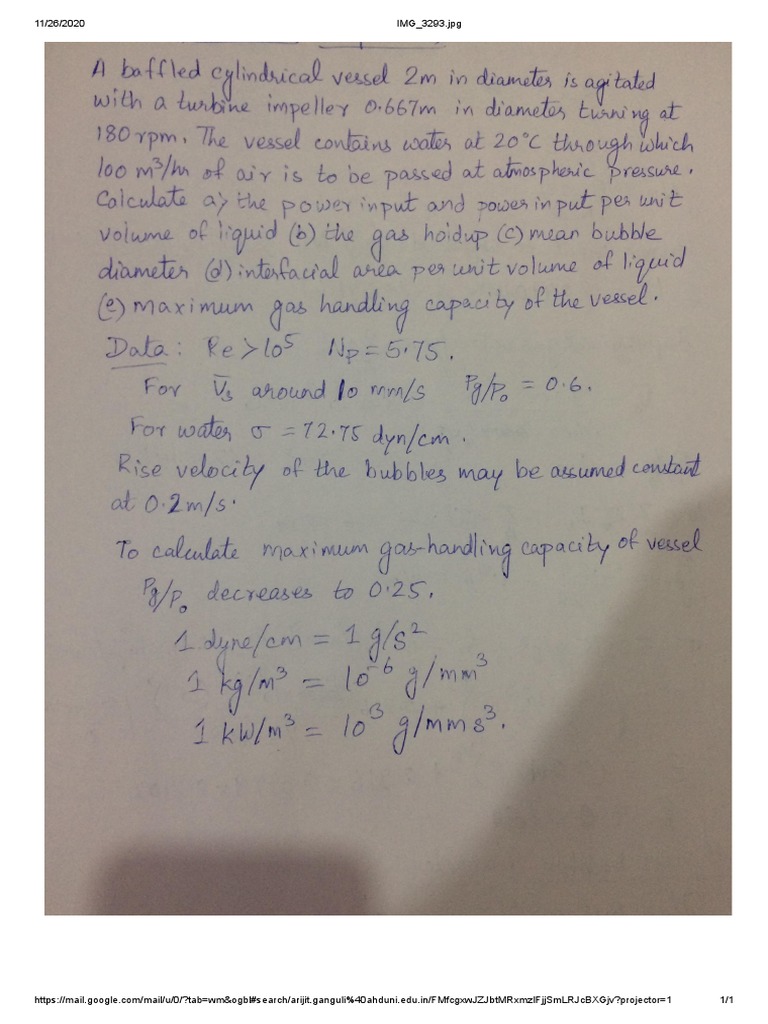 11/26/2020 IMG_3293.jpg
A baffled cylindrical vessel 2m in diameter is agitated
with a turbine impeller 0.667m in diameter turning at
180 rpm. The vessel contains water at 20°C through which
100 m³/hr of air is to be passed at atmospheric pressure.
Calculate a) the power input and power input per unit
volume of liquid (b) the gas holdup (c) mean bubble
diameter (d) interfacial area per unit volume of liquid
(e) maximum gas handling capacity of the vessel.
Data: Re > 10⁵ Np = 5.75.
For V̄s around 10 mm/s Pg/Po = 0.6.
For water σ = 72.75 dyn/cm.
Rise velocity of the bubbles may be assumed constant
at 0.2 m/s.
To calculate maximum gas-handling capacity of vessel
Pg/Po decreases to 0.25.
1 dyne/cm = 1 g/s²
1 kg/m³ = 10⁻⁶ g/mm³
1 kW/m³ = 10³ g/mm s³.
https://mail.google.com/mail/u/0/?tab=wm&ogbl#search/arijit.ganguli%40ahduni.edu.in/FMfcgxwJZJbtMRxmzlFjjSmLRJcBXGjv?projector=1 1/1